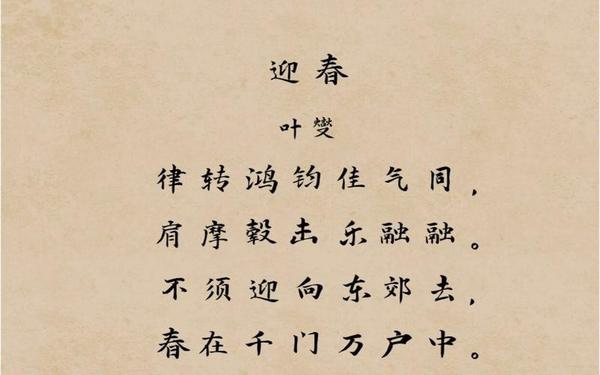 迎春
叶燮
律转鸿钧佳气同，
肩摩毂击乐融融。
不须迎向东郊去，
春在千门万户中。